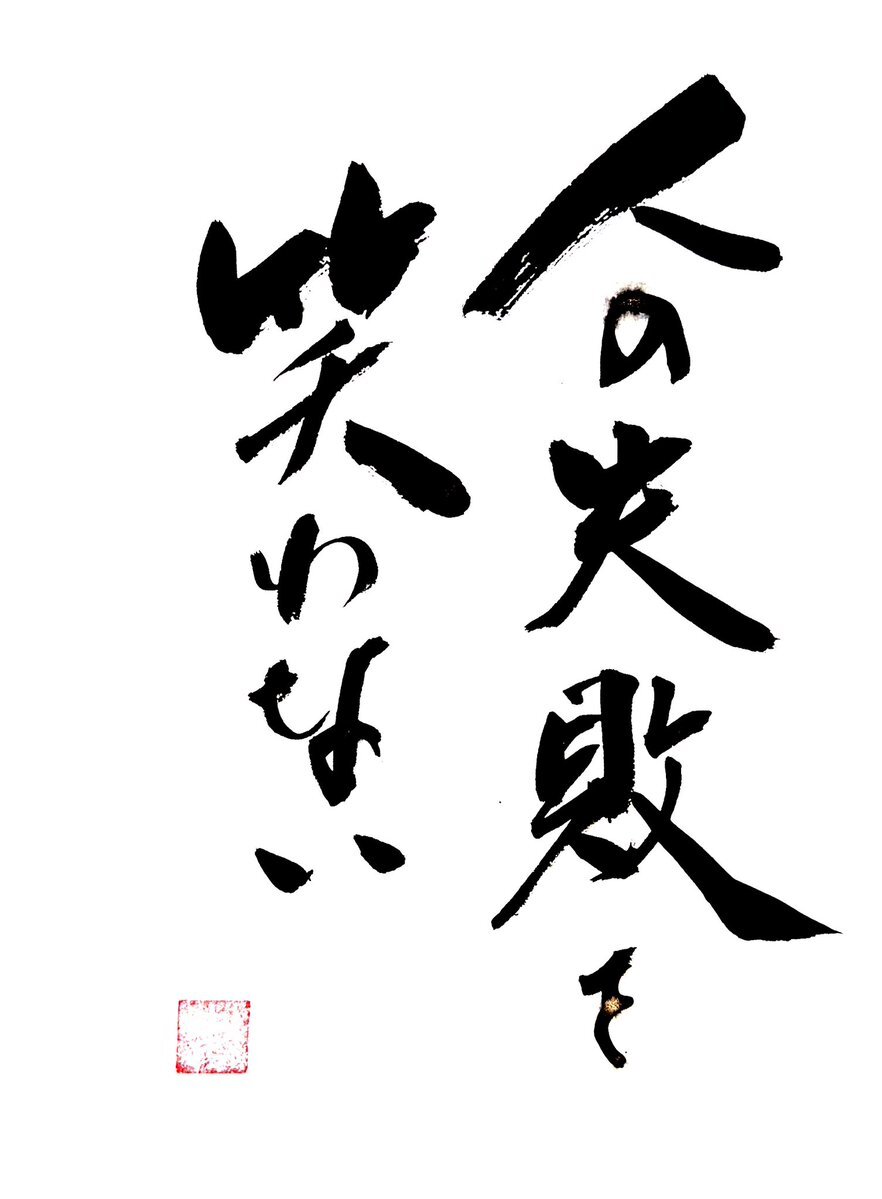 人の失敗を
笑わない